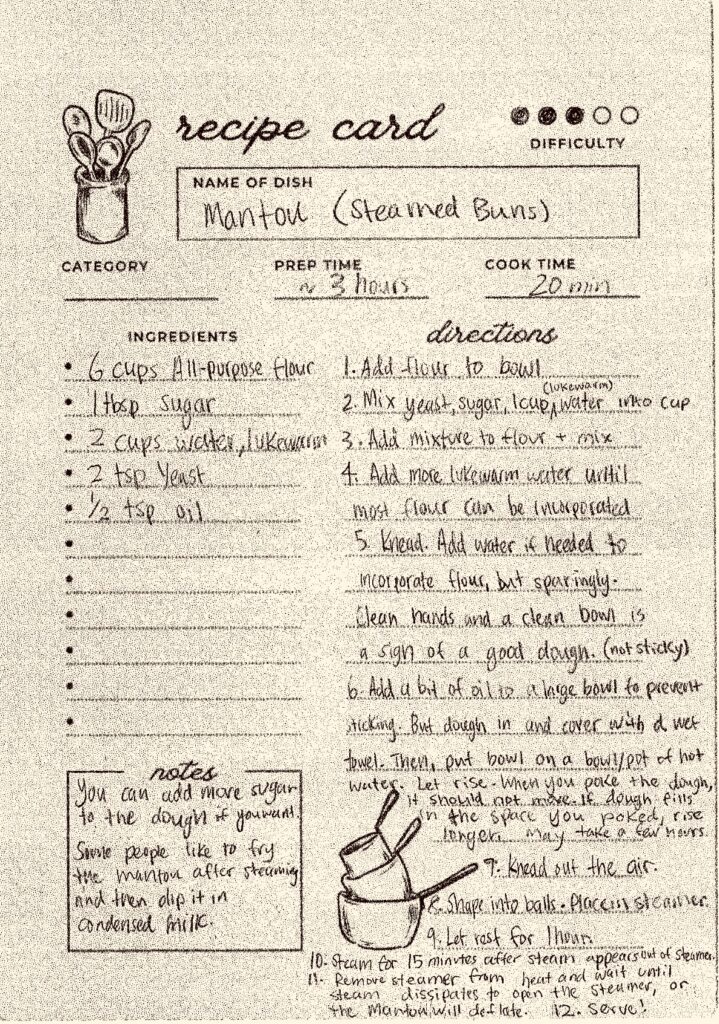 recipe card
DIFFICULTY
NAME OF DISH
Mantou (Steamed Buns)
CATEGORY
PREP TIME
~ 3 hours
COOK TIME
20 min
INGREDIENTS
• 6 cups All-purpose flour
• 1 tbsp sugar
• 2 cups water, lukewarm
• 2 tsp Yeast
• 1/2 tsp oil
directions
1. Add flour to bowl
(lukewarm)
2. Mix yeast, sugar, 1 cup ^ water into cup
3. Add mixture to flour + mix
4. Add more lukewarm water until
most flour can be incorporated
5. Knead. Add water if needed to
incorporate flour, but sparingly.
Clean hands and a clean bowl is
a sign of a good dough. (not sticky)
6. Add a bit of oil to a large bowl to prevent
sticking. But dough in and cover with a wet
towel. Then, put bowl on a bowl/pot of hot
water. Let rise. When you poke the dough,
it should not move. If dough fills
in the space you poked, rise
longer. May take a few hours.
7. Knead out the air.
8. Shape into balls. Place in steamer.
9. Let rest for 1 hour.
10. Steam for 15 minutes after steam appears out of steamer.
11. Remove steamer from heat and wait until
steam dissipates to open the steamer, or
the Mantou will deflate. 12. Serve!
notes
You can add more sugar
to the dough if you want.
Some people like to fry
the mantou after steaming
and then dip it in
condensed milk.